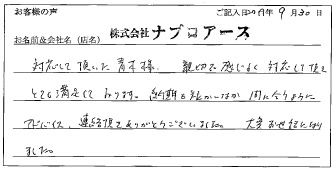 お客様の声
ご記入日2019年 9月30日
お名前&会社名（店名） 株式会社ナプロアース
対応して頂いた青木様、親切で感じよく対応して頂き
とても満足しております。納期も短かいなか間に合うように
アドバイス、連絡頂きありがとうございました。大変お世話になり
ました。